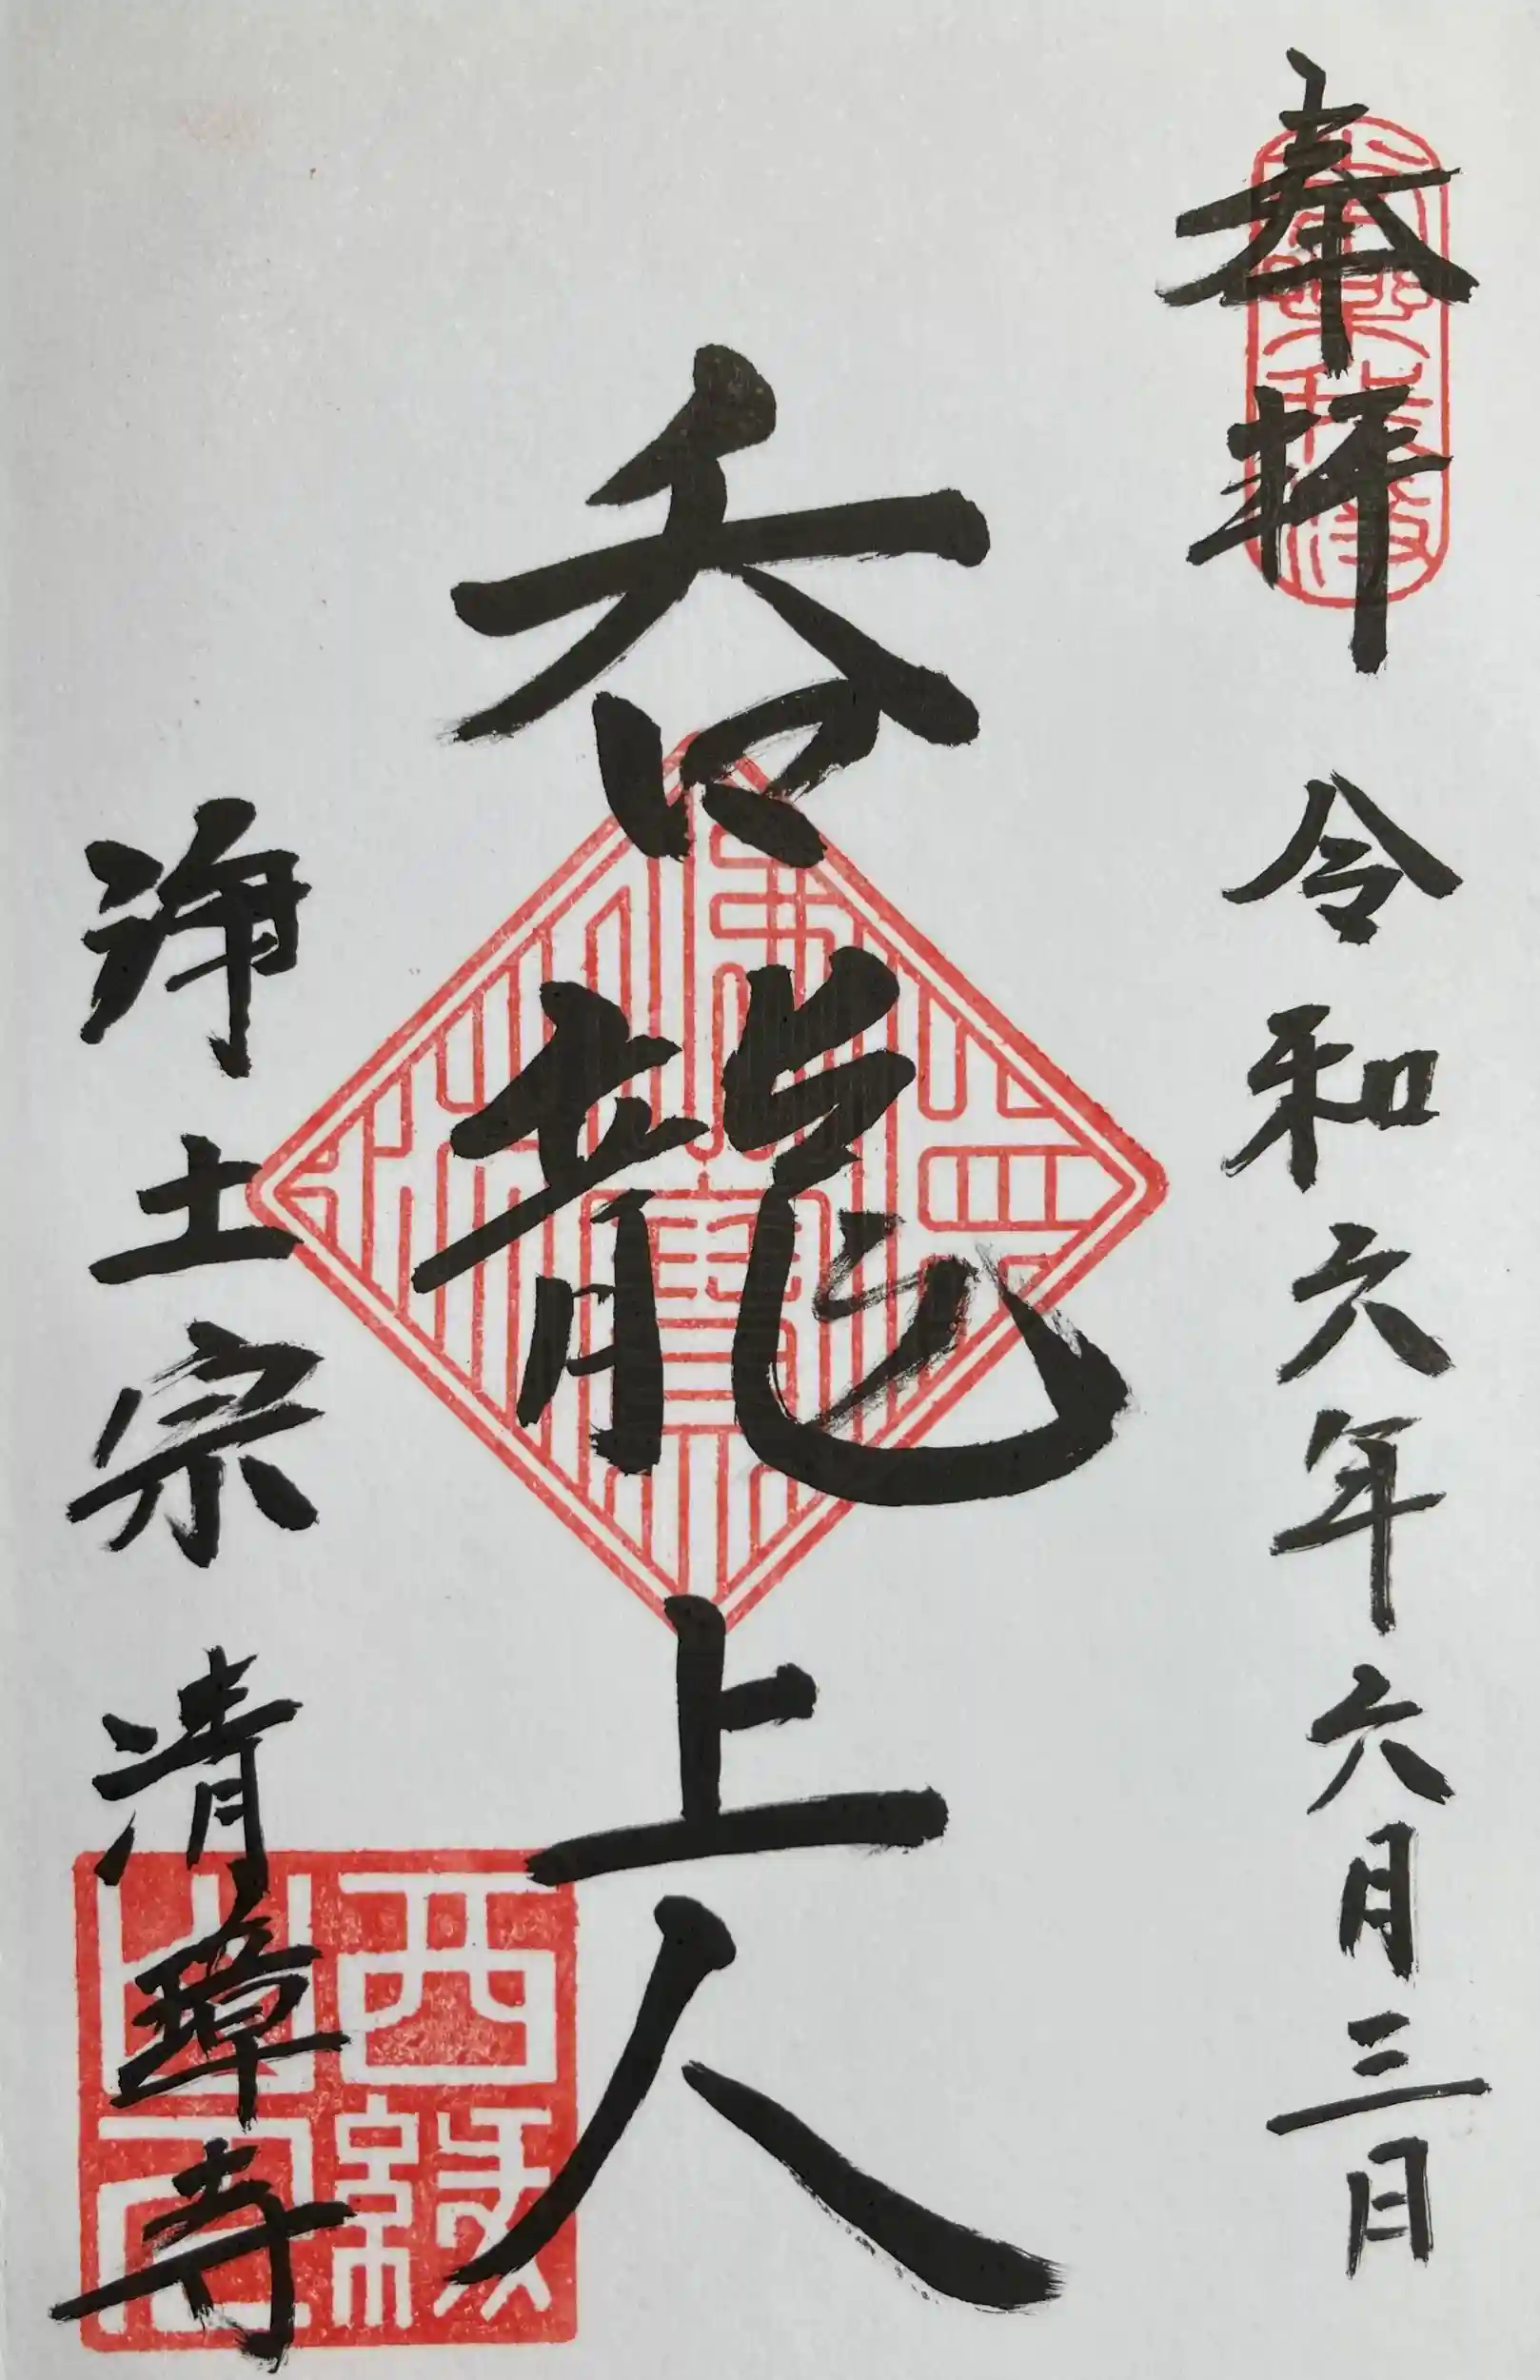 奉拝 令和六年六月三日
呑龍上人
浄土宗 清璋寺